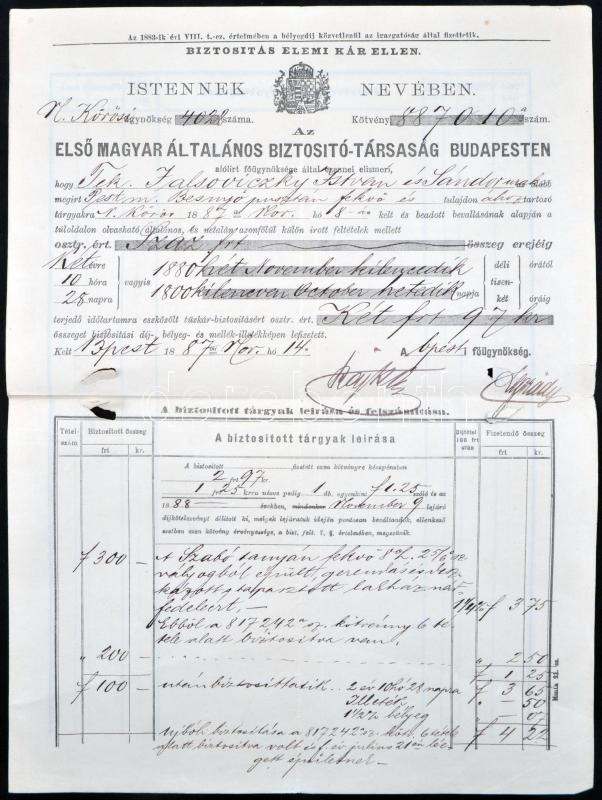 Az 1883-ik évi VIII. t.-cz. értelmében a bélyegdij közvetlenül az igazgatóság által fizettetik.
BIZTOSITÁS ELEMI KÁR ELLEN.
ISTENNEK NEVÉBEN.
N. Kőrösi ügynökség 4028 száma. Kötvény szám.
Az
ELSŐ MAGYAR ÁLTALÁNOS BIZTOSITÓ-TÁRSASÁG BUDAPESTEN
alólirt főügynöksége által ezennel elismeri,
hogy Tek. István és Sándor az alább
megirt Pest m. Besnyő pusztán fekvő és tulajdon ahoz tartozó
tárgyakra N. Kőrös 1887 Nov. hó 8-án kelt és beadott bevallásának alapján a
túloldalon olvasható általános, és netalán azonfölül külön irott feltételek mellett
osztr. ért. Száz frt összeg erejéig
Két évre 1880hét November kilenczedik déli órától
10 hóra vagyis tizen-
28 napra 1800kilenczven October hetedik napja két óráig
terjedő időtartamra eszközölt tűzkár-biztositásért osztr. ért. Két frt 97 kr
összeget biztositási díj- bélyeg- és mellék-illetékképen lefizetett.
Kelt Bpest 1887 Nov. hó 14. A bpesti főügynökség.
A biztositott tárgyak leirása és felszámitása.
Tétel-szám Biztositott összeg A biztositott tárgyak leirása Díjtétel 100 frt után Fizetendő összeg
frt kr. frt kr.
A biztositott fizetett ezen kötvényre készpénzben
2 frt 97 kr.
1 frt 25 krra nézve pedig 1 db. egyenkint f 1.25 szóló és az
1888 években, mindenkor November 9 lejáró
díjkötelezvényt állitott ki, melyek lejáratuk idején pontosan beváltandók, ellenkező
esetben ezen kötvény érvényessége, a bizt. felt. 7. § értelmében, megszünik.
f 300 — A Szabó tanyán fekvő 8 l.
vályogból épült, gerendás és
tapasztott lakház nád-
fedeleért, — f 3 75
Ebből a 817242 sz. kötvény 6 té-
tele alatt biztositva van.
" 200 — " 2 50
f 1 25
f 100 — után biztosittatik 2 év 10 hó 28 napra f 3 65
Illeték " — 50
bélyeg " — 07
f 4 22
Ujból biztositása a 817242 sz. kötv. 6 tétele
alatt biztositva volt és f. év julius 21 én leé-
gett épületnek —